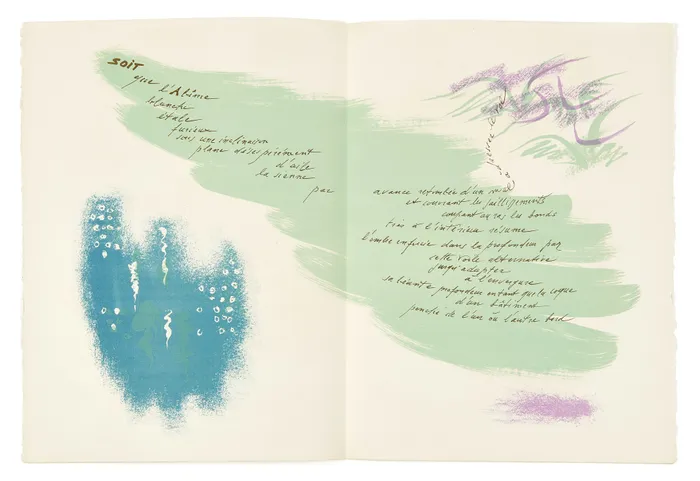 SOIT
que l'Abîme
blanchi
étale
furieux
sous une inclinaison
plane désespérément
d'aile
la sienne
par
avance retombée d'un mal
et couvrant les jaillissements
coupant au ras les bonds
très à l'intérieur résume
l'ombre enfouie dans la profondeur par
cette voile alternative
jusqu'adapter
à l'envergure
sa béante profondeur entant que la coque
d'un bâtiment
penché de l'un ou l'autre bord